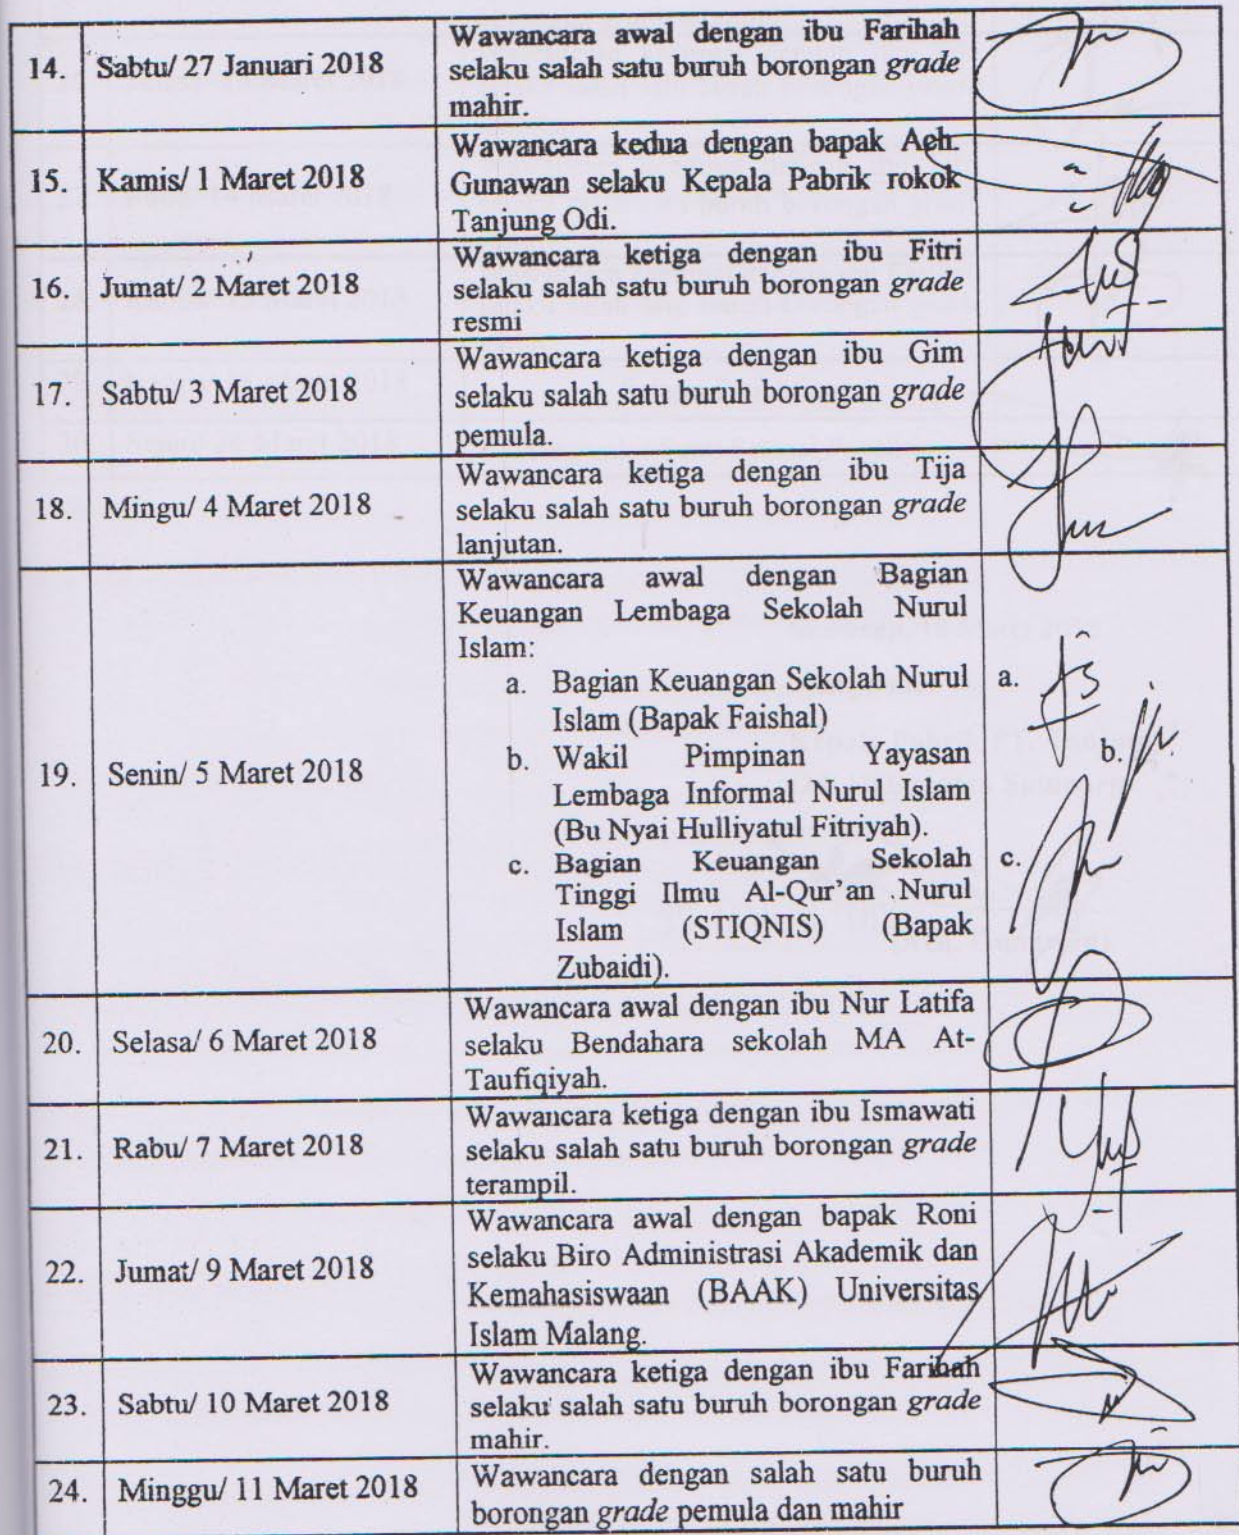 14. Sabtu/ 27 Januari 2018
Wawancara awal dengan ibu Farihah
selaku salah satu buruh borongan grade
mahir.
15. Kamis/ 1 Maret 2018
Wawancara kedua dengan bapak Ach.
Gunawan selaku Kepala Pabrik rokok
Tanjung Odi.
16. Jumat/ 2 Maret 2018
Wawancara ketiga dengan ibu Fitri
selaku salah satu buruh borongan grade
resmi
17. Sabtu/ 3 Maret 2018
Wawancara ketiga dengan ibu Gim
selaku salah satu buruh borongan grade
pemula.
18. Mingu/ 4 Maret 2018
Wawancara ketiga dengan ibu Tija
selaku salah satu buruh borongan grade
lanjutan.
19. Senin/ 5 Maret 2018
Wawancara awal dengan Bagian
Keuangan Lembaga Sekolah Nurul
Islam:
a. Bagian Keuangan Sekolah Nurul
Islam (Bapak Faishal)
b. Wakil Pimpinan Yayasan
Lembaga Informal Nurul Islam
(Bu Nyai Hulliyatul Fitriyah).
c. Bagian Keuangan Sekolah
Tinggi Ilmu Al-Qur'an Nurul
Islam (STIQNIS) (Bapak
Zubaidi).
a.
b.
c.
20. Selasa/ 6 Maret 2018
Wawancara awal dengan ibu Nur Latifa
selaku Bendahara sekolah MA At-
Taufiqiyah.
21. Rabu/ 7 Maret 2018
Wawancara ketiga dengan ibu Ismawati
selaku salah satu buruh borongan grade
terampil.
22. Jumat/ 9 Maret 2018
Wawancara awal dengan bapak Roni
selaku Biro Administrasi Akademik dan
Kemahasiswaan (BAAK) Universitas
Islam Malang.
23. Sabtu/ 10 Maret 2018
Wawancara ketiga dengan ibu Farihah
selaku salah satu buruh borongan grade
mahir.
24. Minggu/ 11 Maret 2018
Wawancara dengan salah satu buruh
borongan grade pemula dan mahir